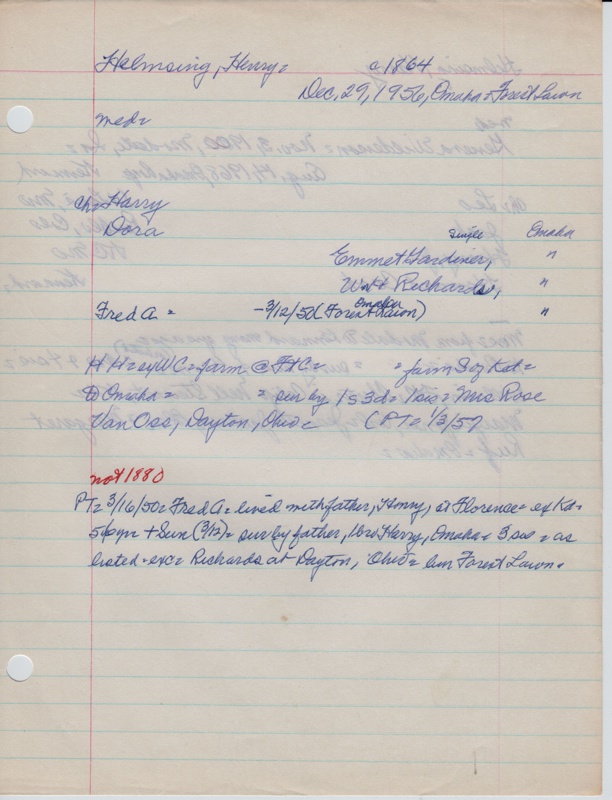 Helmsing, Henry = c 1864
Dec. 29, 1956, Omaha = Forest Lawn
med =
ch = Harry
Dora single Omaha
Emmet Gardiner, "
Wm Richards, "
Fred A = - 3/12/50 (Forest Lawn) Omaha "
H H = ey WC = farm @ Ft C = = farm S of Kd =
D Omaha = = sur by 1s 3d = 1 sis = Mrs Rose
Van Oss, Dayton, Ohio = (PT = 1/3/57
not 1880
PT = 3/16/50 = Fred A = lived with father, Henry, at Florence = ex Kd =
56yr = + Sun (3/12) = sur by father, bro Harry, Omaha = 3 sis = as
listed = exc = Richards at Dayton, Ohio = bur Forest Lawn =